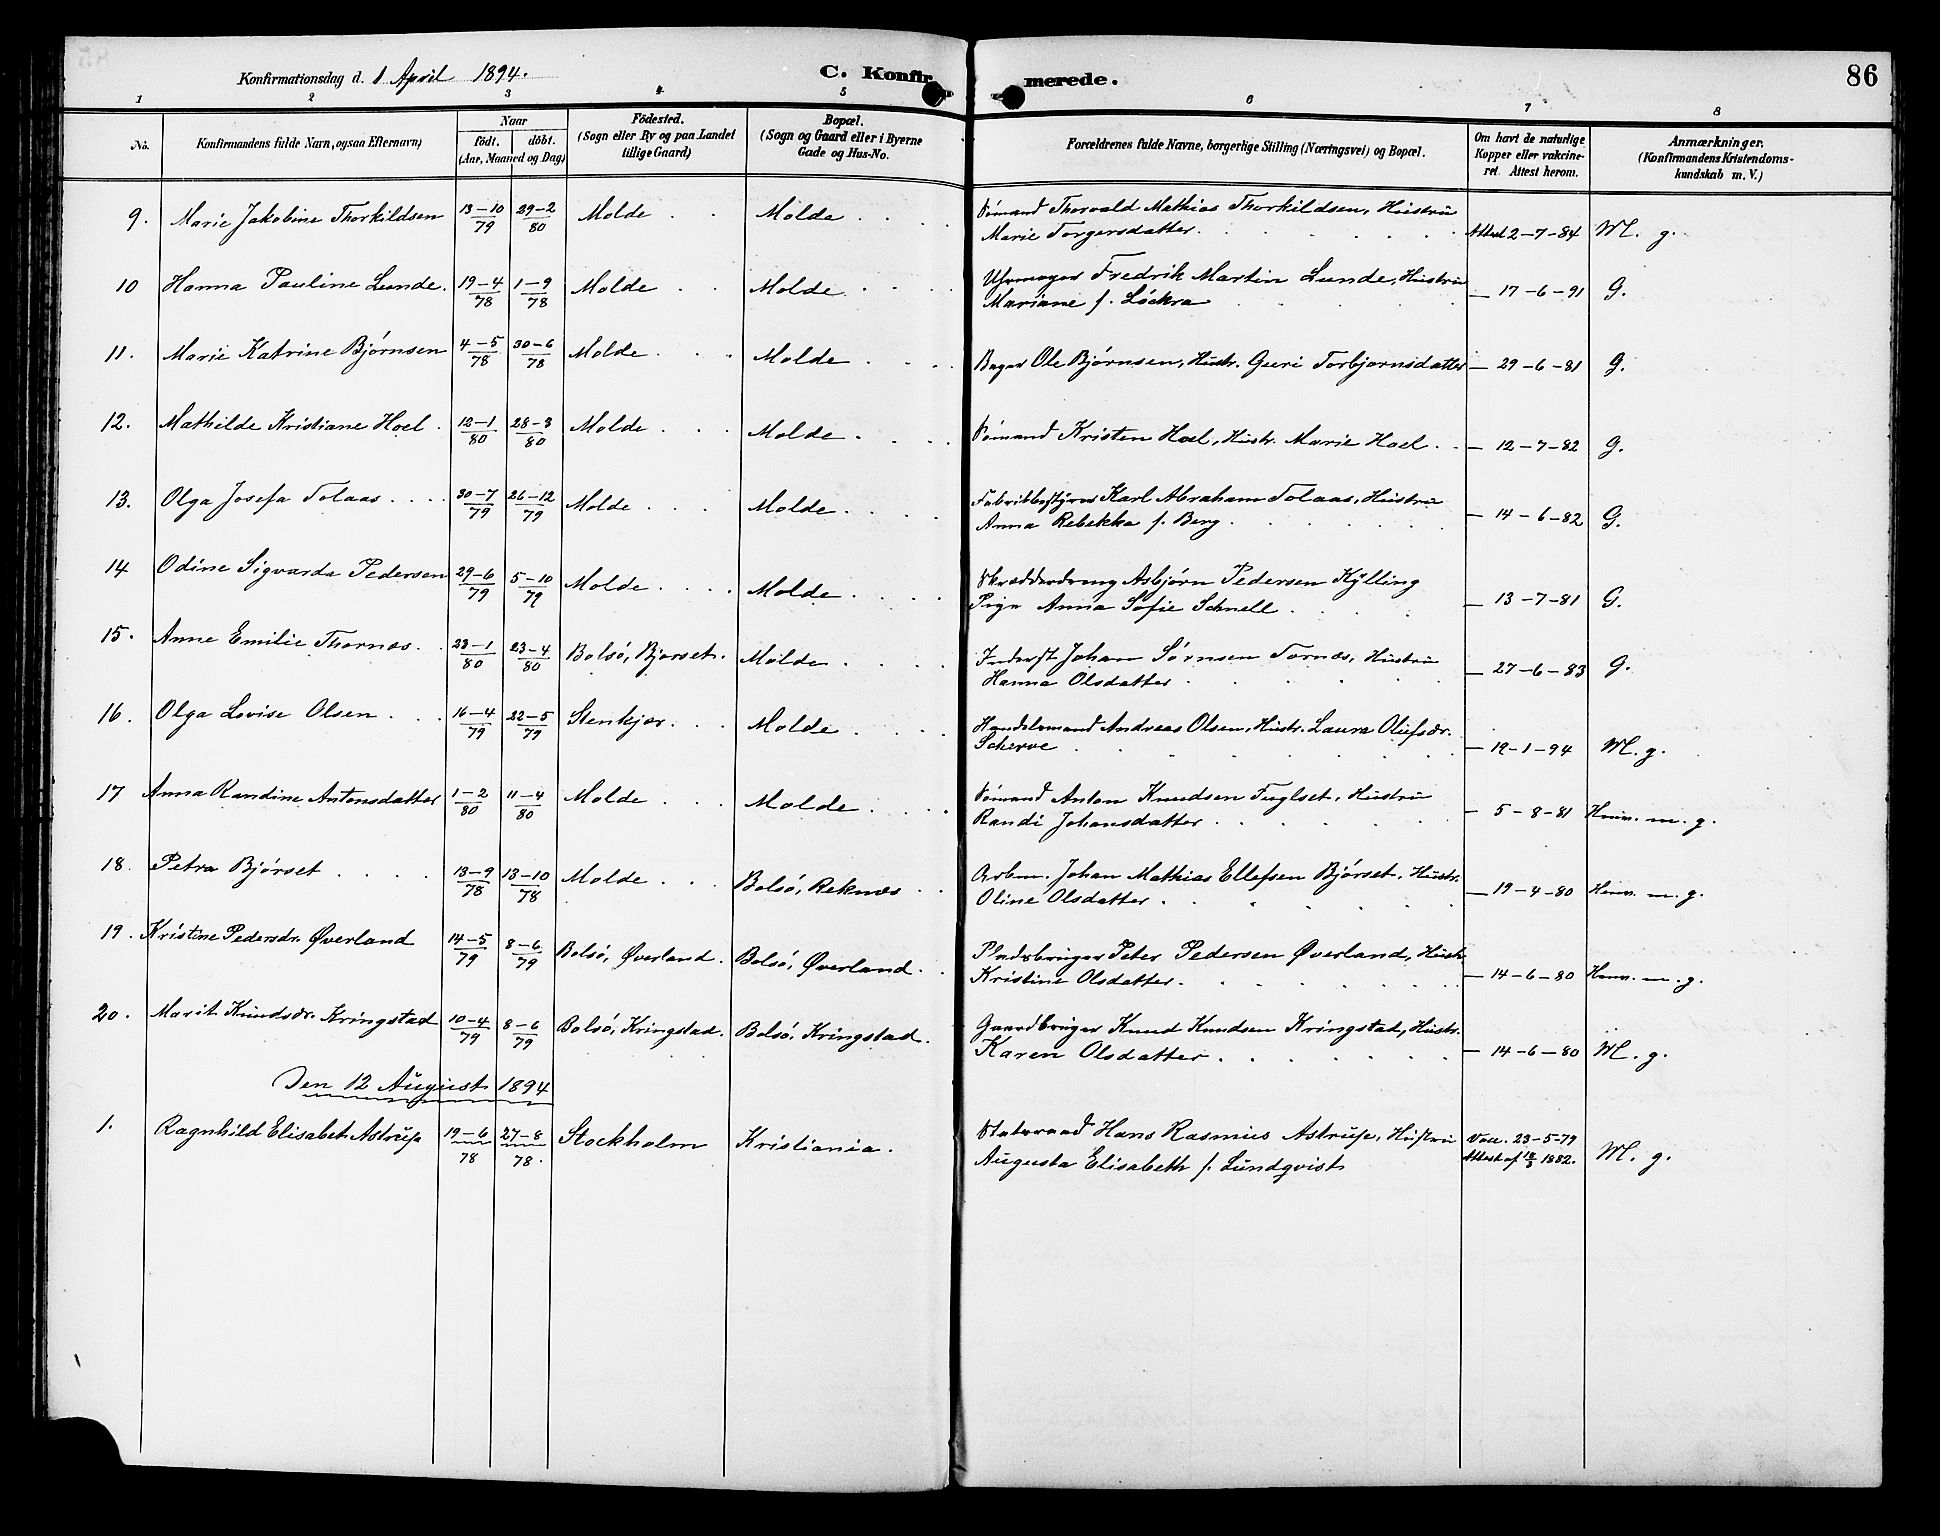 Konfirmationsdag d. 1 April 1894. C. Konfirmerede. 86
1 2 3 4 5 6 7 8
No. Konfirmandens fulde Navn, ogsaa Efternavn) Naar födt. döbt. (Aar, Maaned og Dag) Födested. (Sogn eller By og paa Landet tillige Gaard) Bopæl. (Sogn og Gaard eller i Byerne Gade og Hus-No. Forældrenes fulde Navne, borgerlige Stilling (Næringsvei) og Bopæl. Om havt de naturlige Kopper eller vakcineret. Attest herom. Anmærkninger. (Konfirmandens Kristendomskundskab m. V.)
9. Marie Jakobine Thorkildsen 13-10/79 29-2/80 Molde Molde Sömand Thorvald Mathias Thorkildsen, Hustru Marie Torgersdatter. Attest 2-7-84 M. g.
10 Hanna Pauline Lunde. 19-4/78 1-9/78 Molde Molde Uhrmager Fredrik Martin Lunde, Hustru Mariane f. Löckra — 17-6-91 G.
11. Marie Katrine Bjørnsen 4-5/78 30-6/78 Molde Molde Bager Ole Bjørnsen, Hustr. Guri Torbjørnsdatter — 29-6-81 G.
12. Mathilde Kristiane Hoel. 12-1/80 28-3/80 Molde Molde Sömand Kristen Hoel, Hustr. Marie Hoel — 12-7-82 G.
13. Olga Josefa Tolaas 30-7/79 26-12/79 Molde Molde Fabrikbestyrer Karl Abraham Tolaas, Hustru Anna Rebekka f. Berg. — 14-6-82 G.
14 Odine Sigvarda Pedersen 29-6/79 5-10/79 Molde Molde Skrædderdreng Asbjørn Pedersen Kylling Pige Anna Sofie Schnell. — 13-7-81 G.
15. Anne Emilie Thornæs. 23-1/80 23-4/80 Bolsö, Bjorset. Molde Inderst Johan Sørnsen Tornæs, Hustru Hanna Olsdatter — 27-6-83 G.
16. Olga Lovise Olsen 16-4/79 22-5/79 Stenkjær. Molde Handelsmand Andreas Olsen, Hustr. Laura Olufsdr. Scherve — 19-1-94 M. g.
17 Anna Randine Antonsdatter 1-2/80 11-4/80 Molde Molde Sömand Anton Knudsen Fuglset, Hustru Randi Johansdatter — 5-8-81 Henv. m. g.
18. Petra Bjørset 13-9/78 13-10/78 Molde Bolsö, Reknæs Arbm. Johan Mathias Ellefsen Bjørset, Hustr. Oline Olsdatter — 19-4-80 Henv. m. g.
19. Kristine Pedersdr. Øverland 14-5/79 8-6/79 Bolsö, Øverland. Bolsö, Øverland. Pladsbruger Peter Pedersen Øverland, Hustr. Kristine Olsdatter. — 14-6-80 Henv. m. g.
20. Marit Knudsdr. Kringstad 10-4/79 8-6/79 Bolsö, Kringstad. Bolsö, Kringstad. Gaardbruger Knud Knudsen Kringstad, Hustr. Karen Olsdatter — 14-6-80 M. g.
Den 12 August 1894
1. Ragnhild Elisabeth Astrup 19-6/78 27-8/78. Stockholm Kristiania. Statsraad Hans Rasmus Astrup, Hustru Augusta Elisabeth f. Lundqvist Vacc. 23-5-79 Attest af 18/3 1882. M. g.